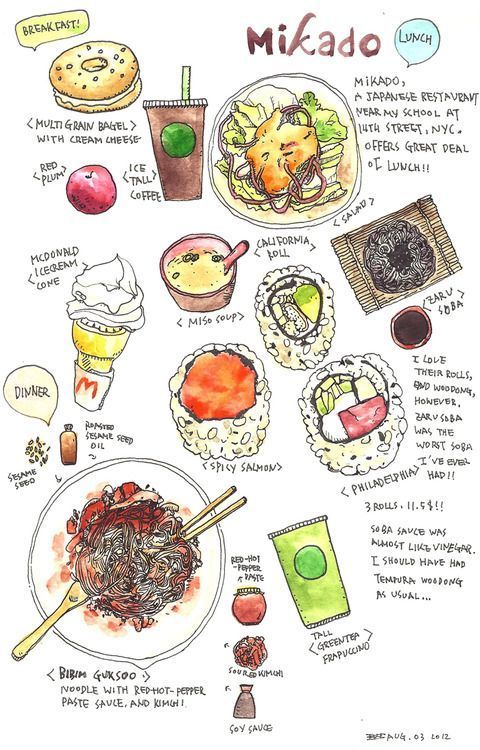 BREAKFAST!
<MULTIGRAIN BAGEL>
WITH CREAM CHEESE
<RED
PLUM>
<ICE
TALL>
COFFEE
Mikado
LUNCH
MIKADO,
A JAPANESE RESTAURANT
NEAR MY SCHOOL AT
14TH STREET, NYC.
OFFERS GREAT DEAL
OF LUNCH!!
<SALAD>
MCDONALD
<ICECREAM>
CONE
M
<MISO SOUP>
<CALIFORNIA
ROLL>
<ZARU
SOBA>
<SPICY SALMON>
<PHILADELPHIA>
I LOVE
THEIR ROLLS,
AND WOODONG,
HOWEVER,
ZARU SOBA
WAS THE
WORST SOBA
I'VE EVER
HAD!!
3 ROLLS. 11.5$!!
SOBA SAUCE WAS
ALMOST LIKE VINEGAR.
I SHOULD HAVE HAD
TEMPURA WOODONG
AS USUAL...
DINNER
SESAME
SEED
ROASTED
SESAME SEED
OIL
<BIBIM GUKSOO>
NOODLE WITH RED-HOT-PEPPER
PASTE SAUCE, AND KIMCHI.
RED-HOT-
PEPPER
PASTE
SOURED KIMCHI
SOY SAUCE
TALL
<GREENTEA>
FRAPUCCINO
AUG. 03 2012